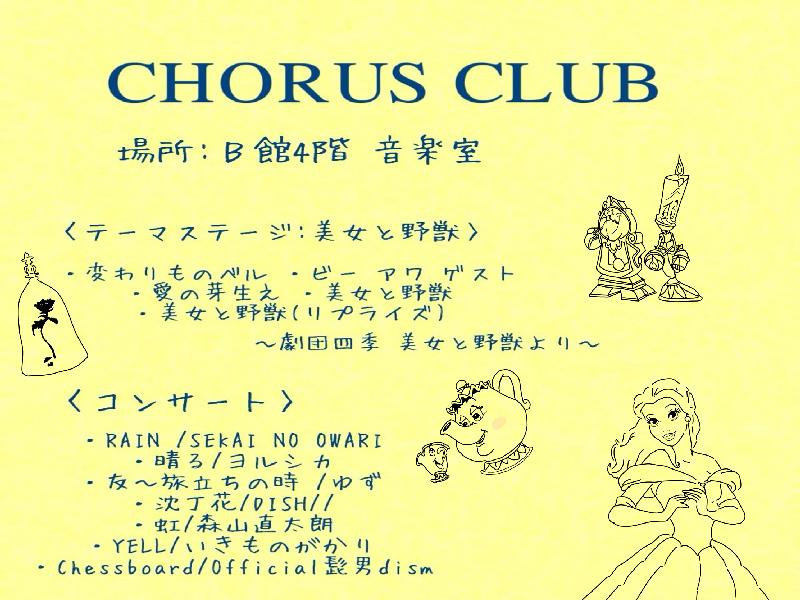 CHORUS CLUB
場所: B館4階 音楽室
〈テーマステージ:美女と野獣〉
・変わりものベル ・ビー アワ ゲスト
・愛の芽生え ・美女と野獣
・美女と野獣(リプライズ)
～劇団四季 美女と野獣より～
〈コンサート〉
・RAIN /SEKAI NO OWARI
・晴る/ヨルシカ
・友～旅立ちの時 /ゆず
・沈丁花/DISH//
・虹/森山直太朗
・YELL/いきものがかり
・Chessboard/Official髭男dism